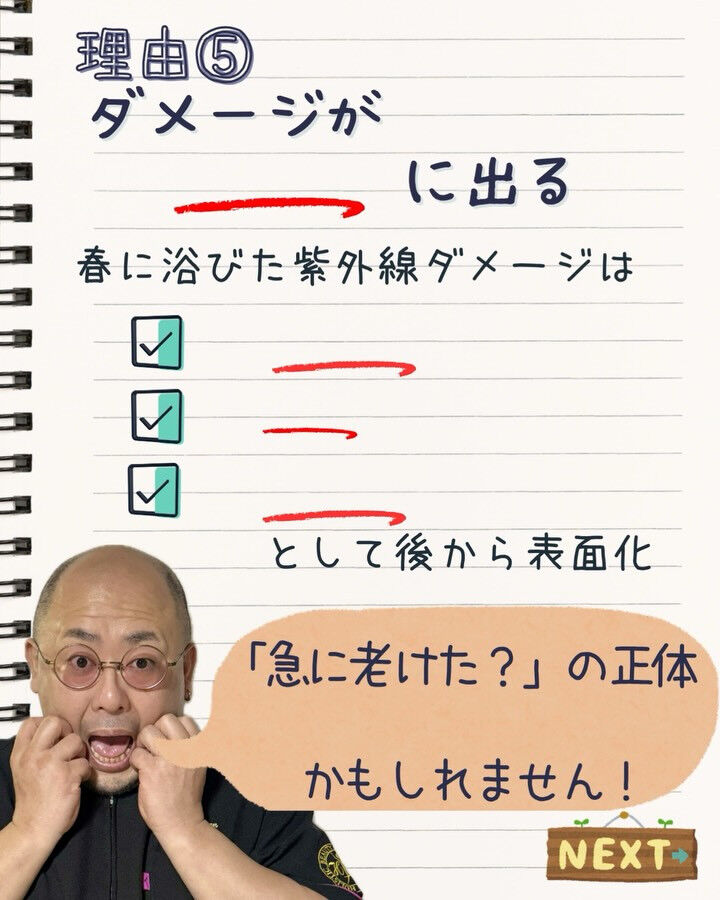 理由⑤
ダメージが
に出る
春に浴びた紫外線ダメージは
として後から表面化
「急に老けた？」の正体
かもしれません！
NEXT